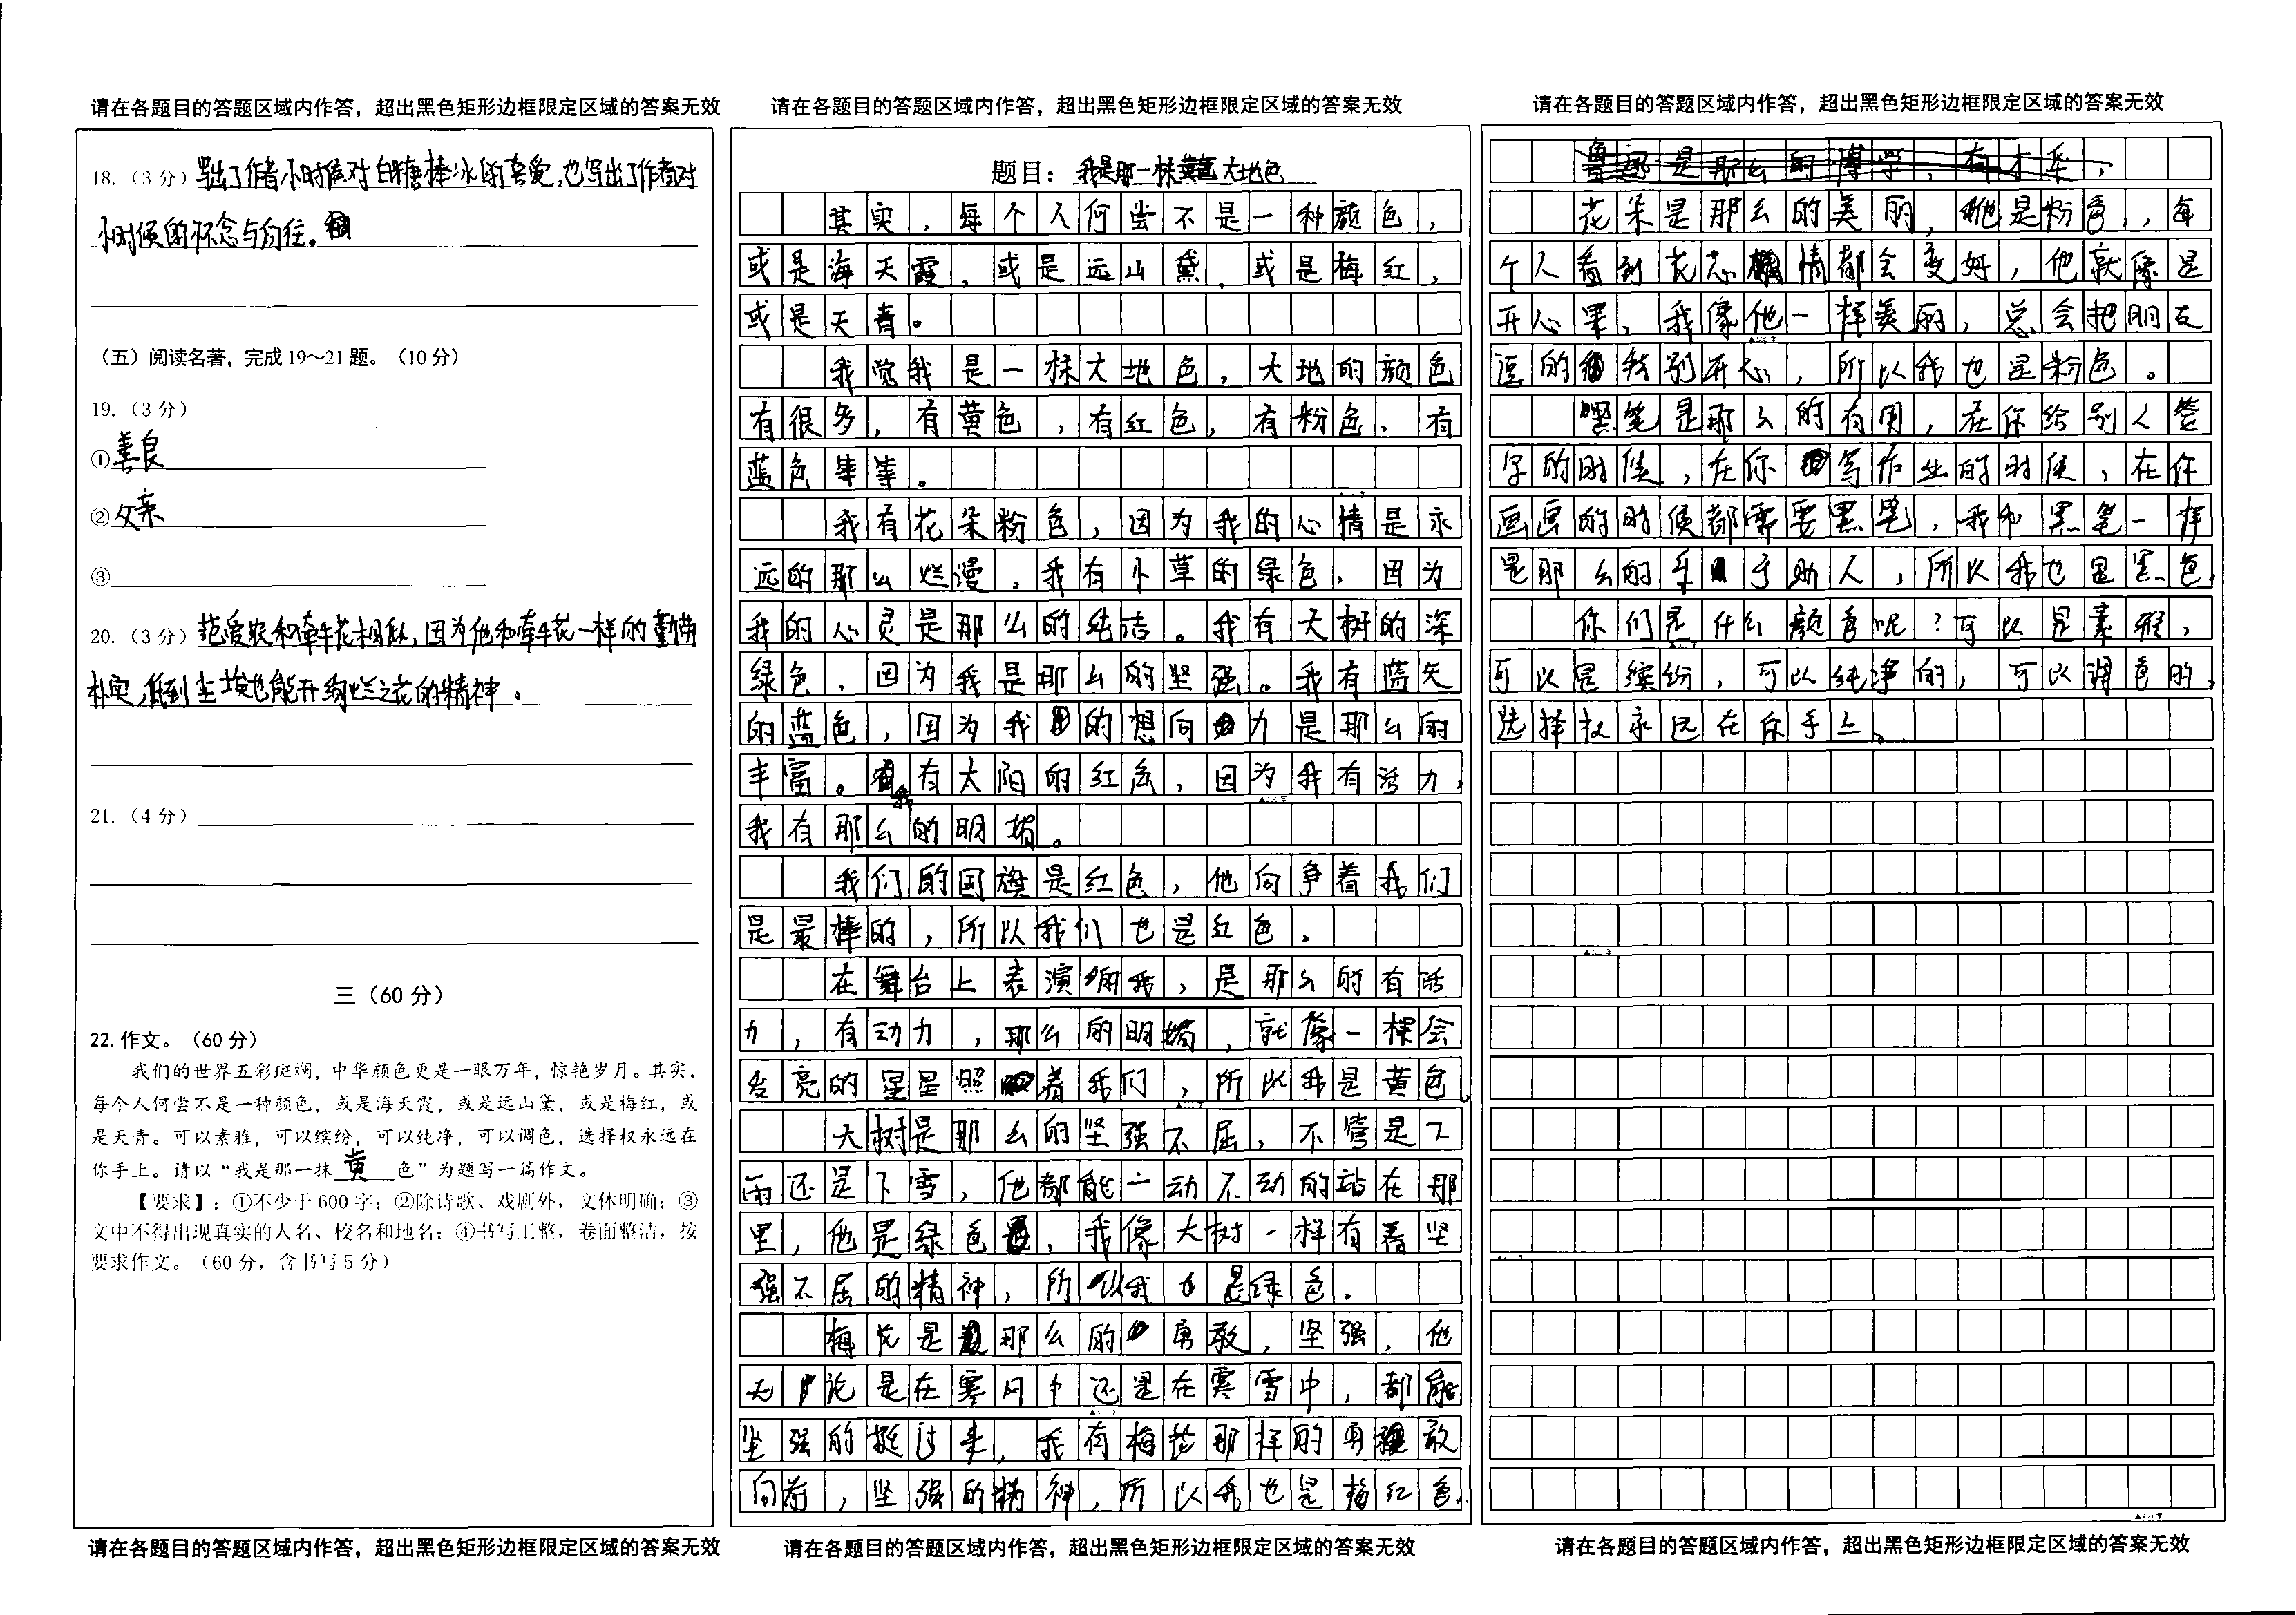 请在各题目的答题区域内作答，超出黑色矩形边框限定区域的答案无效
18.（3分）写出了作者小时候对白糖棒冰的喜爱，也写出了作者对
小时候的怀念与向往。
（五）阅读名著，完成19～21题。（10分）
19.（3分）
①善良
②父亲
③
20.（3分）范爱农和牵牛花相似，因为他和牵牛花一样的勤劳
朴实，低到尘埃也能开绚烂之花的精神。
21.（4分）
三（60分）
22.作文。（60分）
我们的世界五彩斑斓，中华颜色更是一眼万年，惊艳岁月。其实，
每个人何尝不是一种颜色，或是海天霞，或是远山黛，或是梅红，或
是天青。可以素雅，可以缤纷，可以纯净，可以调色，选择权永远在
你手上。请以“我是那一抹黄色”为题写一篇作文。
【要求】：①不少于600字；②除诗歌、戏剧外，文体明确；③
文中不得出现真实的人名、校名和地名；④书写工整，卷面整洁，按
要求作文。（60分，含书写5分）
请在各题目的答题区域内作答，超出黑色矩形边框限定区域的答案无效
请在各题目的答题区域内作答，超出黑色矩形边框限定区域的答案无效
题目：我是那一抹大地色
其实，每个人何尝不是一种颜色，
或是海天霞，或是远山黛，或是梅红，
或是天青。
我觉我是一抹大地色，大地的颜色
有很多，有黄色，有红色，有粉色，有
蓝色等等。
我有花朵粉色，因为我的心情是永
远的那么烂漫，我有小草的绿色，因为
我的心灵是那么的纯洁。我有大树的深
绿色，因为我是那么的坚强。我有蓝天
的蓝色，因为我的想向力是那么的
丰富。我有太阳的红色，因为我有活力，
我有那么的明媚。
我们的国旗是红色，他向争着我们
是最棒的，所以我们也是红色。
在舞台上表演的我，是那么的有活
力，有动力，那么的明媚，就像一棵会
发亮的星星照着我们，所以我是黄色。
大树是那么的坚强不屈，不管是下
雨还是下雪，他都能一动不动的站在那
里，他是绿色，我像大树一样有着坚
强不屈的精神，所以我也是绿色。
梅花是那么的勇敢，坚强，他
无论是在寒风中还是在寒雪中，都能
坚强的挺过来，我有梅花那样的勇敢
向前，坚强的精神，所以我也是梅红色。
请在各题目的答题区域内作答，超出黑色矩形边框限定区域的答案无效
请在各题目的答题区域内作答，超出黑色矩形边框限定区域的答案无效
鲁迅是那么的博学，有才
花朵是那么的美丽，他是粉色，每
个人看到花心情都会变好，他就像是
开心果，我像他一样美丽，总会把朋友
逗的特别开心，所以我也是粉色。
黑笔是那么的有用，在你给别人签
字的时候，在你写作业的时候，在你
画画的时候都需要黑笔，我和黑笔一样
是那么的乐于助人，所以我也是黑色。
你们是什么颜色呢？可以是素雅，
可以是缤纷，可以纯净的，可以调色的，
选择权永远在你手上。
请在各题目的答题区域内作答，超出黑色矩形边框限定区域的答案无效